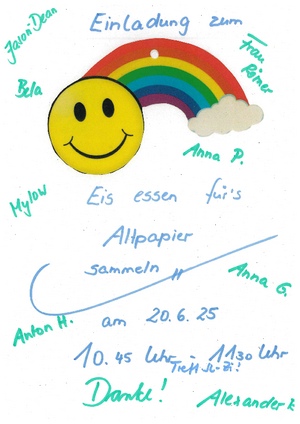 Einladung zum
Jason-Dean
Frau
Bela
Anna P.
Mylow
Eis essen für's
Altpapier
sammeln "
Anna G.
Anton H.
am 20.6.25
10.45 Uhr - 11 30 Uhr
Danke!
Alexander